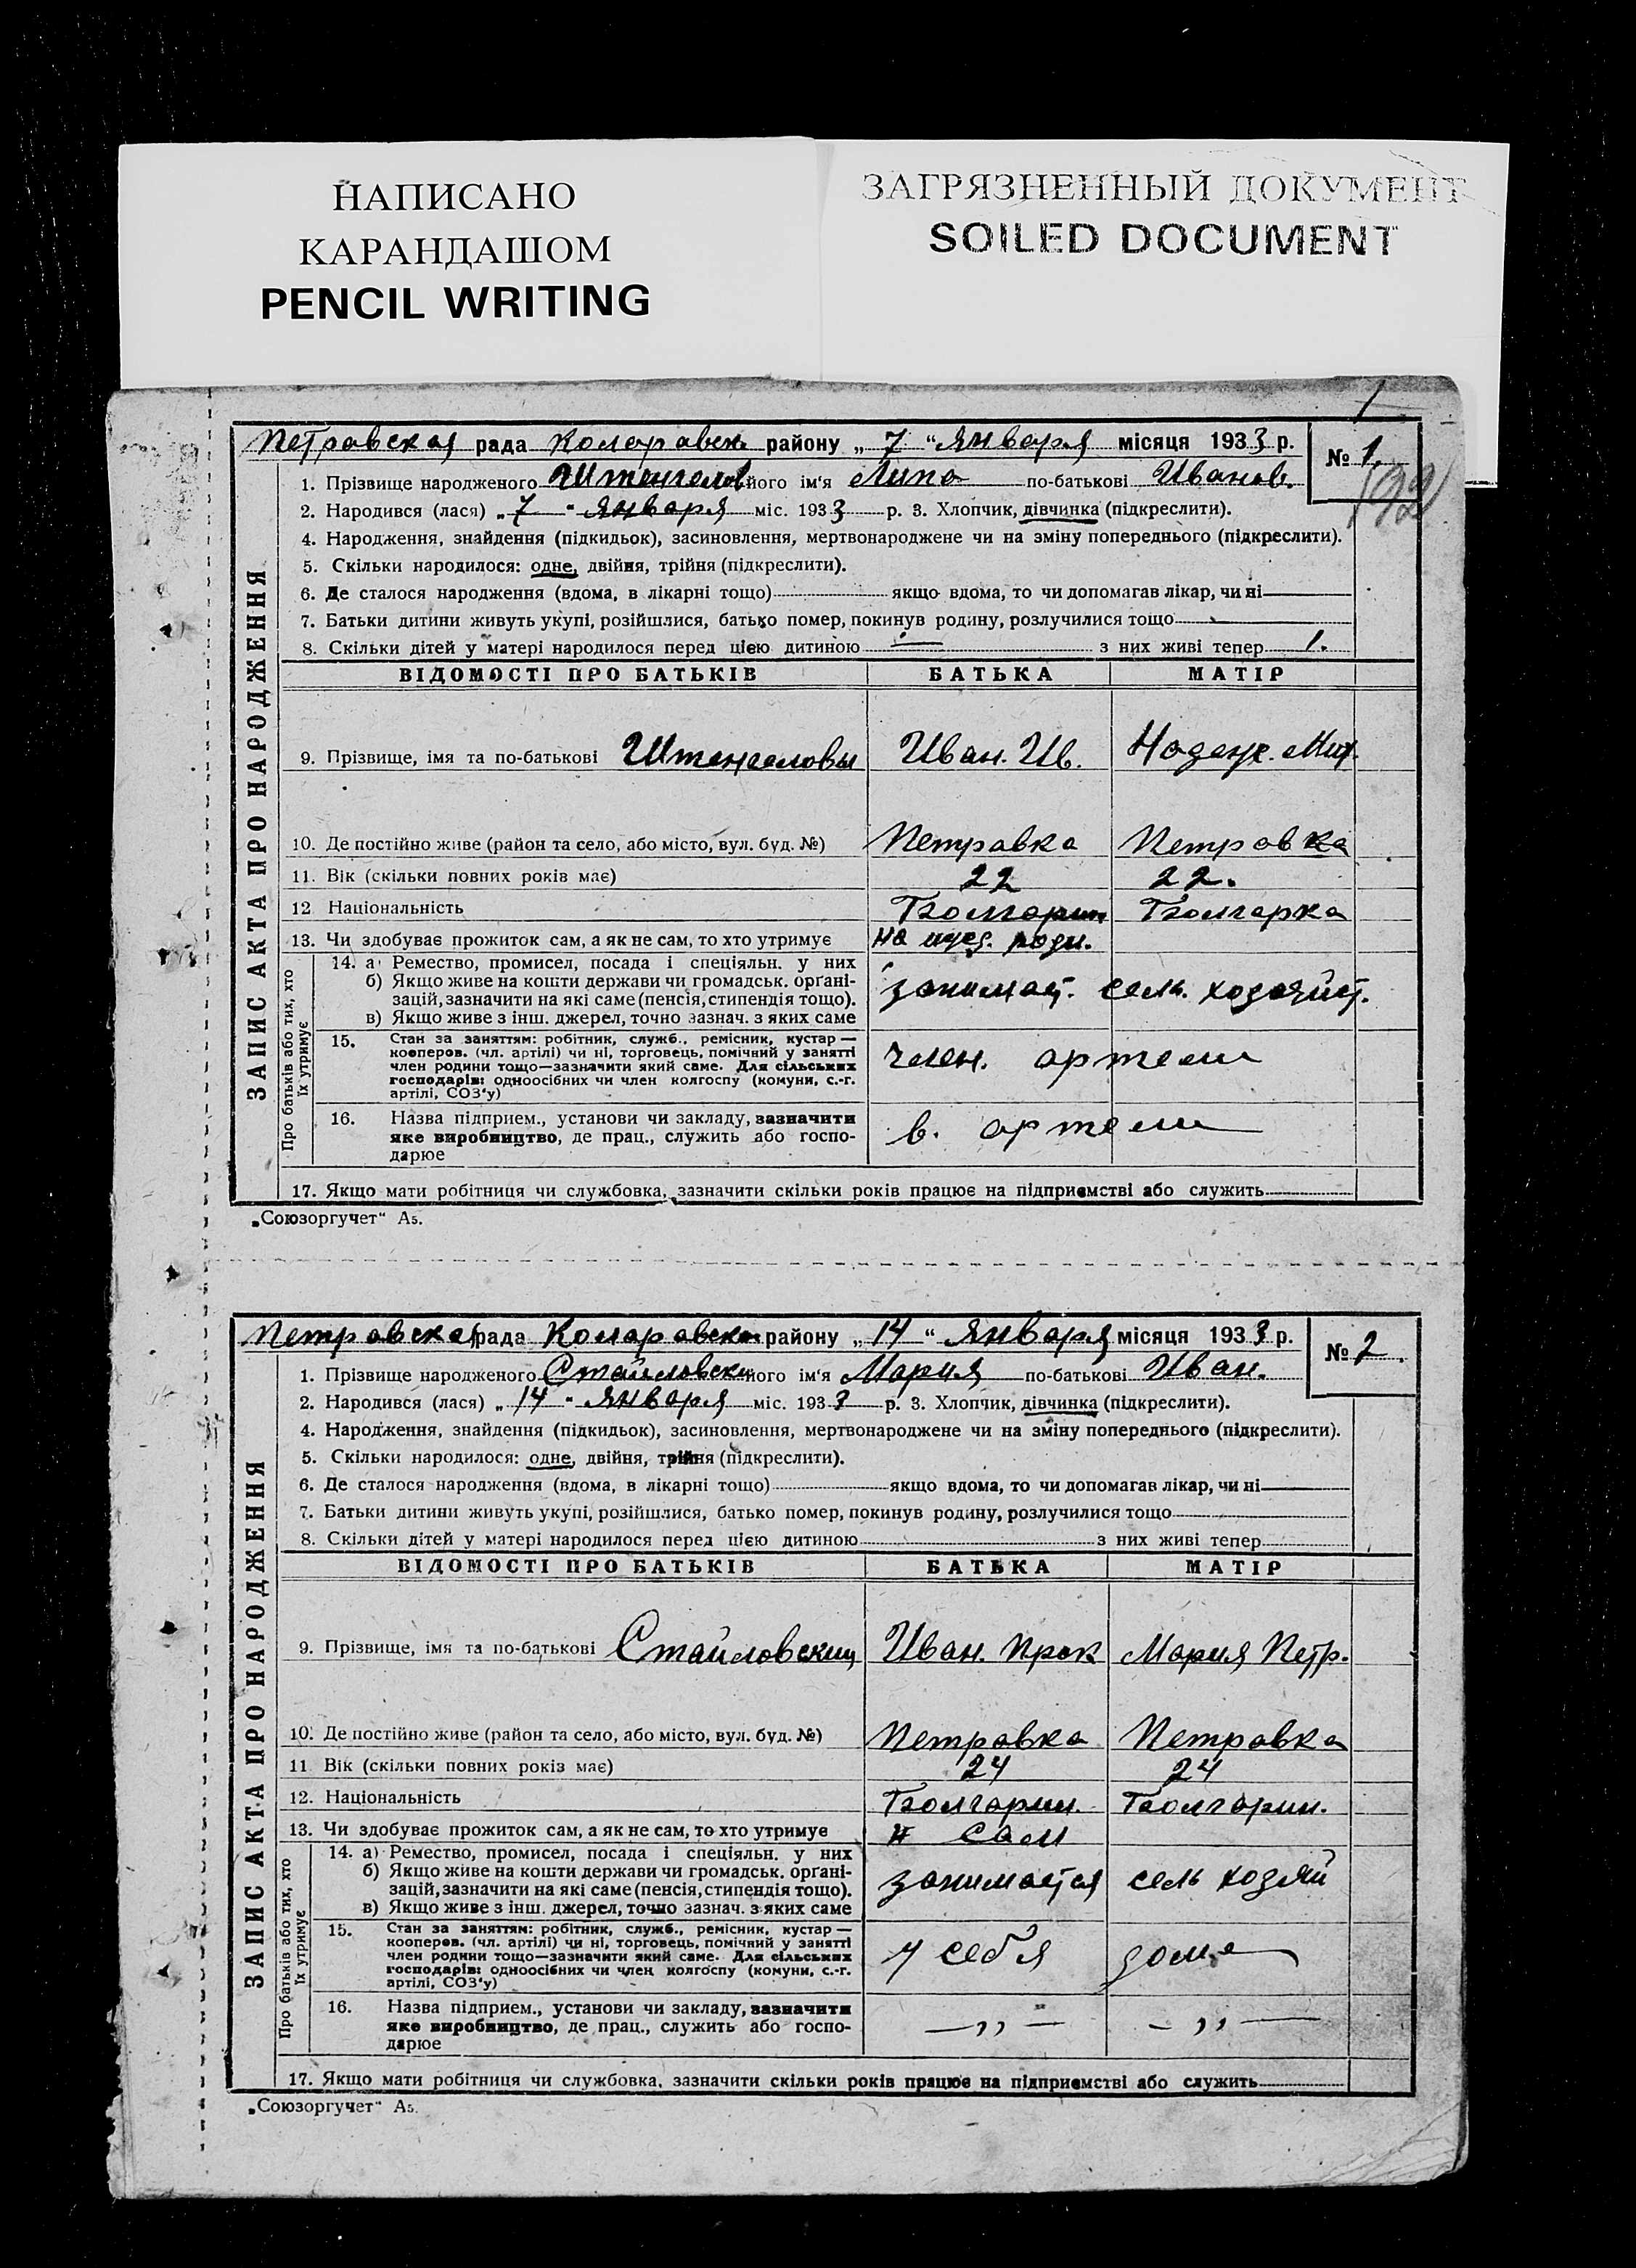 НАПИСАНО
КАРАНДАШОМ
PENCIL WRITING
ЗАГРЯЗНЕННЫЙ ДОКУМЕНТ
SOILED DOCUMENT
1
Петравская рада Коларавск району „ 7 “ января місяця 1933 р.
№ 1.
192
ЗАПИС АКТА ПРО НАРОДЖЕННЯ
1. Прізвище народженого його ім'я по-батькові Иванов.
2. Народився (лася) „ 7 “ января міс. 1933 р. 3. Хлопчик, дівчинка (підкреслити).
4. Народження, знайдення (підкидьок), засиновлення, мертвонароджене чи на зміну попереднього (підкреслити).
5. Скільки народилося: одне, двійня, трійня (підкреслити).
6. Де сталося народження (вдома, в лікарні тощо) якщо вдома, то чи допомагав лікар, чи ні
7. Батьки дитини живуть укупі, розійшлися, батько помер, покинув родину, розлучилися тощо
8. Скільки дітей у матері народилося перед цією дитиною — з них живі тепер 1.
ВІДОМОСТІ ПРО БАТЬКІВ БАТЬКА МАТІР
9. Прізвище, імя та по-батькові Иван. Ив.
10. Де постійно живе (район та село, або місто, вул. буд. №) Петравка Петравка
11. Вік (скільки повних років має) 22 22.
12 Національність Болгарин Болгарка
13. Чи здобуває прожиток сам, а як не сам, то хто утримує на ижд. роди.
Про батьків або тих, хто їх утримує
14. а) Ремество, промисел, посада і спеціяльн. у них
б) Якщо живе на кошти держави чи громадськ. організацій, зазначити на які саме (пенсія, стипендія тощо).
в) Якщо живе з інш. джерел, точно зазнач. з яких саме
занимает. сель. хозяйст.
15. Стан за заняттям: робітник, служб., ремісник, кустар —
кооперов. (чл. артілі) чи ні, торговець, помічний у занятті
член родини тощо—зазначити який саме. Для сільських
господарів: одноосібних чи член колгоспу (комуни, с.-г.
артілі, СОЗ'у)
член. артели
16. Назва підприєм., установи чи закладу, зазначити
яке виробництво, де прац., служить або господарює
в. артели
17. Якщо мати робітниця чи службовка, зазначити скільки років працює на підприємстві або служить
„Союзоргучет“ А5.
Петравская рада Коларавск району „ 14 “ января місяця 1933 р.
№ 2.
ЗАПИС АКТА ПРО НАРОДЖЕННЯ
1. Прізвище народженого Стайловски його ім'я Мария по-батькові Иван.
2. Народився (лася) „ 14 “ января міс. 1933 р. 3. Хлопчик, дівчинка (підкреслити).
4. Народження, знайдення (підкидьок), засиновлення, мертвонароджене чи на зміну попереднього (підкреслити).
5. Скільки народилося: одне, двійня, трійня (підкреслити).
6. Де сталося народження (вдома, в лікарні тощо) якщо вдома, то чи допомагав лікар, чи ні
7. Батьки дитини живуть укупі, розійшлися, батько помер, покинув родину, розлучилися тощо
8. Скільки дітей у матері народилося перед цією дитиною з них живі тепер
ВІДОМОСТІ ПРО БАТЬКІВ БАТЬКА МАТІР
9. Прізвище, імя та по-батькові Стайловский Иван. Прок Мария Петр.
10. Де постійно живе (район та село, або місто, вул. буд. №) Петравка Петравка
11 Вік (скільки повних років має) 24 24
12. Національність Болгарин. Болгарин.
13. Чи здобуває прожиток сам, а як не сам, то хто утримує сам
Про батьків або тих, хто їх утримує
14. а) Ремество, промисел, посада і спеціяльн. у них
б) Якщо живе на кошти держави чи громадськ. організацій, зазначити на які саме (пенсія, стипендія тощо).
в) Якщо живе з інш. джерел, точно зазнач. з яких саме
занимается сель хозяй
15. Стан за заняттям: робітник, служб., ремісник, кустар —
кооперов. (чл. артілі) чи ні, торговець, помічний у занятті
член родини тощо—зазначити який саме. Для сільських
господарів: одноосібних чи член колгоспу (комуни, с.-г.
артілі, СОЗ'у)
у себя дома
16. Назва підприєм., установи чи закладу, зазначити
яке виробництво, де прац., служить або господарює
—„— —„—
17. Якщо мати робітниця чи службовка, зазначити скільки років працює на підприємстві або служить
„Союзоргучет“ А5.